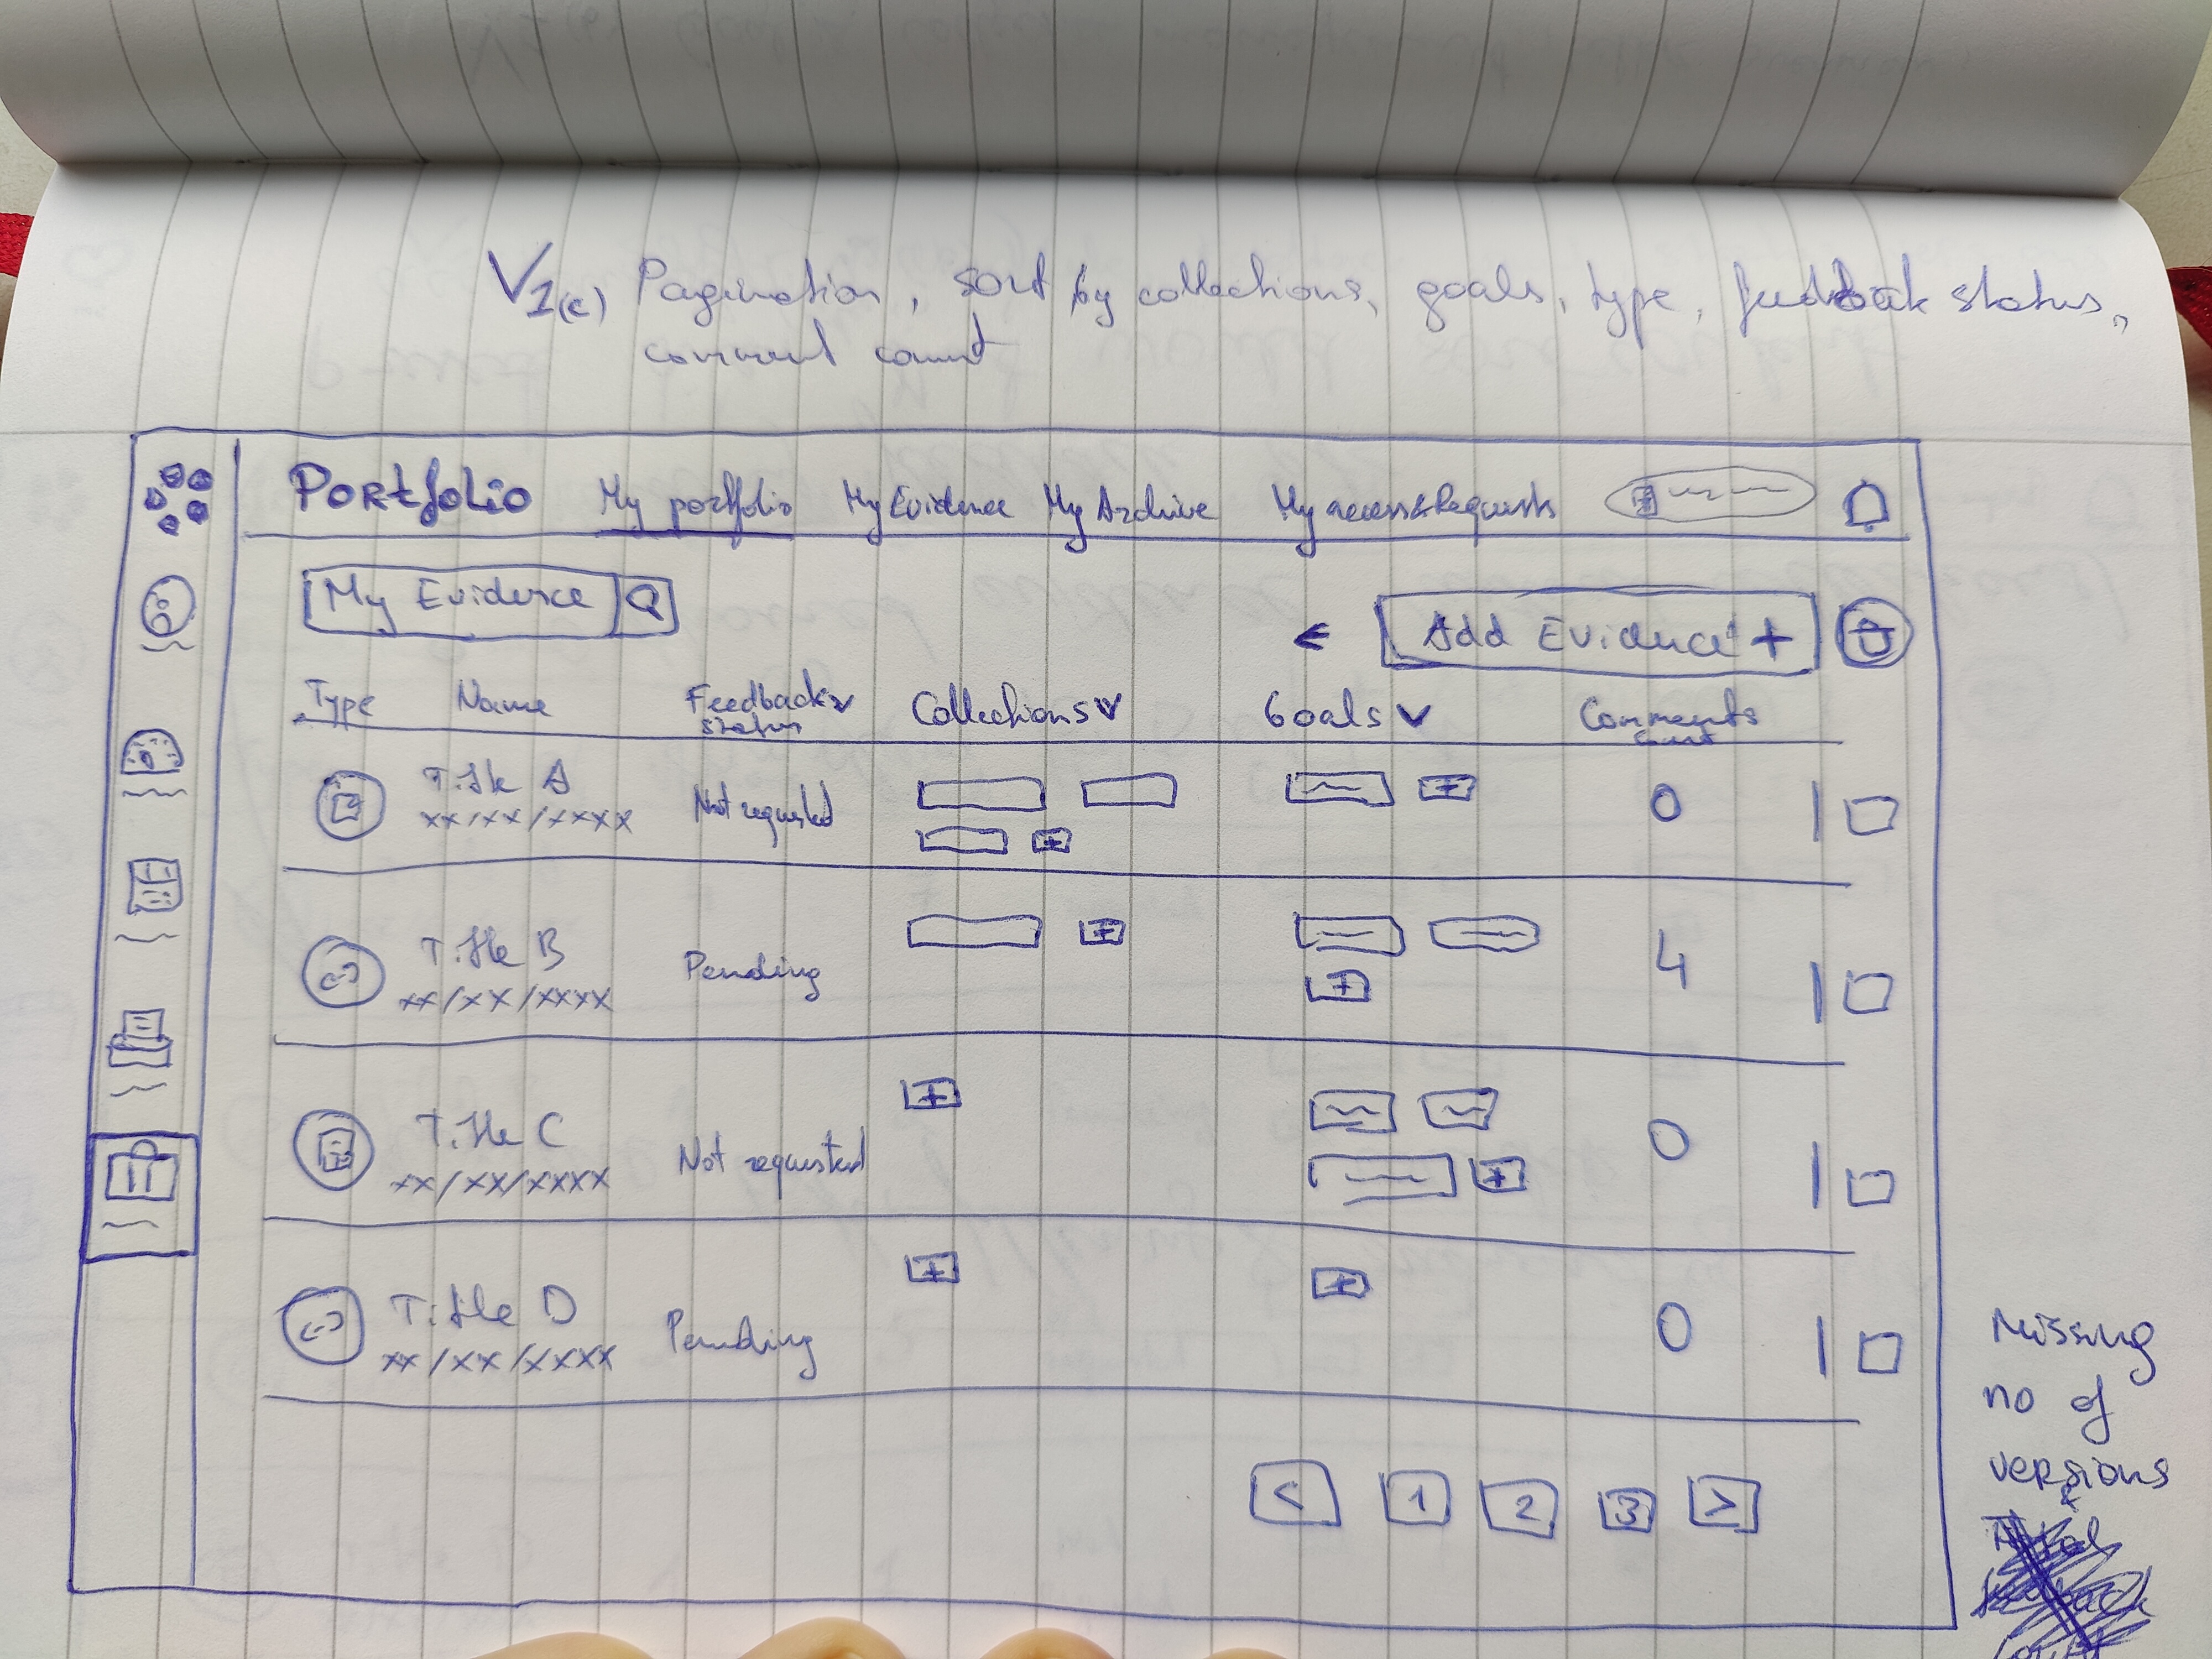 V1(c) Pagination, sort by collections, goals, type, feedback status,
comment count
Portfolio My portfolio My Evidence My Archive My access&Requests
My Evidence
← Add Evidence +
Type Name Feedback status Collections Goals Comments count
Title A Not requested 0
xx/xx/xxxx
+
+
Title B Pending 4
xx/xx/xxxx
+
+
Title C Not requested 0
xx/xx/xxxx
+
+
Title D Pending 0
xx/xx/xxxx
+
+
< 1 2 3 >
Missing
no of
versions
&